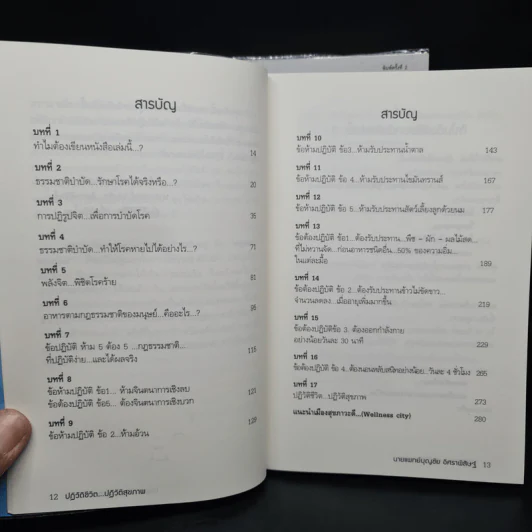 สารบัญ
บทที่ 1
ทำไมต้องเขียนหนังสือเล่มนี้...? 14
บทที่ 2
ธรรมชาติบำบัด...รักษาโรคได้จริงหรือ...? 20
บทที่ 3
การปฏิรูปจิต...เพื่อการบำบัดโรค 35
บทที่ 4
ธรรมชาติบำบัด...ทำให้โรคหายไปได้อย่างไร...? 71
บทที่ 5
พลังจิต...พิชิตโรคร้าย 81
บทที่ 6
อาหารตามกฎธรรมชาติของมนุษย์...คืออะไร...? 95
บทที่ 7
ข้อปฏิบัติ ห้าม 5 ต้อง 5 ...กฎธรรมชาติ...
ที่ปฏิบัติง่าย...และได้ผลจริง 115
บทที่ 8
ข้อห้ามปฏิบัติ ข้อ1... ห้ามจินตนาการเชิงลบ
ข้อต้องปฏิบัติ ข้อ5... ต้องจินตนาการเชิงบวก 121
บทที่ 9
ข้อห้ามปฏิบัติ ข้อ 2...ห้ามอ้วน 129
12 ปฏิวัติชีวิต...ปฏิวัติสุขภาพ
พิมพ์ครั้งที่
สารบัญ
บทที่ 10
ข้อห้ามปฏิบัติ ข้อ3...ห้ามรับประทานน้ำตาล 143
บทที่ 11
ข้อห้ามปฏิบัติ ข้อ 4...ห้ามรับประทานไขมันทรานส์ 167
บทที่ 12
ข้อห้ามปฏิบัติ ข้อ 5...ห้ามรับประทานสัตว์เลี้ยงลูกด้วยนม... 177
บทที่ 13
ข้อต้องปฏิบัติ ข้อ1...ต้องรับประทาน...พืช - ผัก - ผลไม้สด...
ที่ไม่หวานจัด...ก่อนอาหารชนิดอื่น...50% ของความอิ่ม...
ในแต่ละมื้อ 189
บทที่ 14
ข้อต้องปฏิบัติ ข้อ 2...ต้องรับประทานข้าวไม่ขัดขาว...
จำนวนลดลง...เมื่ออายุเพิ่มมากขึ้น 219
บทที่ 15
ข้อต้องปฏิบัติข้อ 3. ต้องออกกำลังกาย
อย่างน้อยวันละ 30 นาที 229
บทที่ 16
ข้อต้องปฏิบัติ ข้อ 4..ต้องนอนหลับสนิทอย่างน้อย..วันละ 4 ชั่วโมง 265
บทที่ 17
ปฏิวัติชีวิต...ปฏิวัติสุขภาพ 273
แนะนำเมืองสุขภาวะดี...(Wellness city) 280
นายแพทย์บุญชัย อิศราพิสิษฐ์ 13